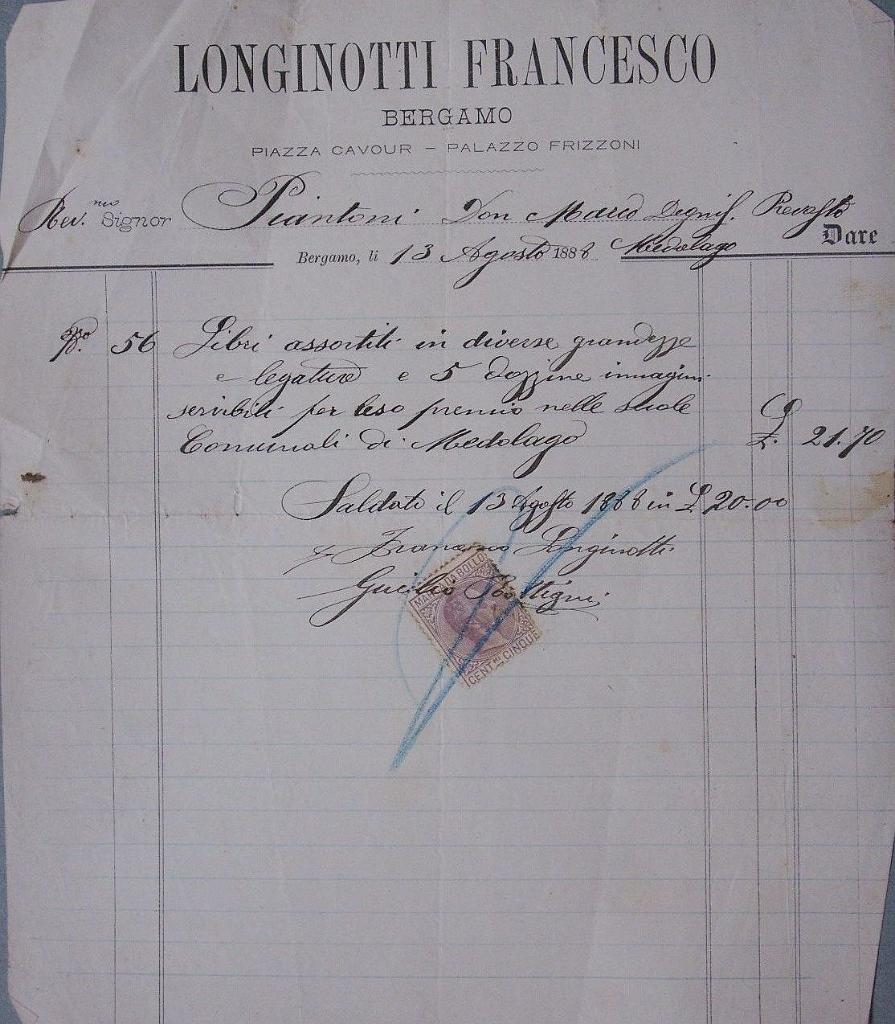 LONGINOTTI FRANCESCO
BERGAMO
PIAZZA CAVOUR – PALAZZO FRIZZONI
Rev.mo Signor Piantoni Don Marco Degnis. Prevosto
Dare
Bergamo, li 13 Agosto 1888 Medolago
56 Libri assortiti in diverse grandezze
e legature e 5 dozzine immagini
servibili per uso premio nelle scuole
Comunali di Medolago £. 21.70
Saldato il 13 Agosto 1888 in £ 20.00
Francesco Longinotti
MARCA DA BOLLO
CENT.MI CINQUE